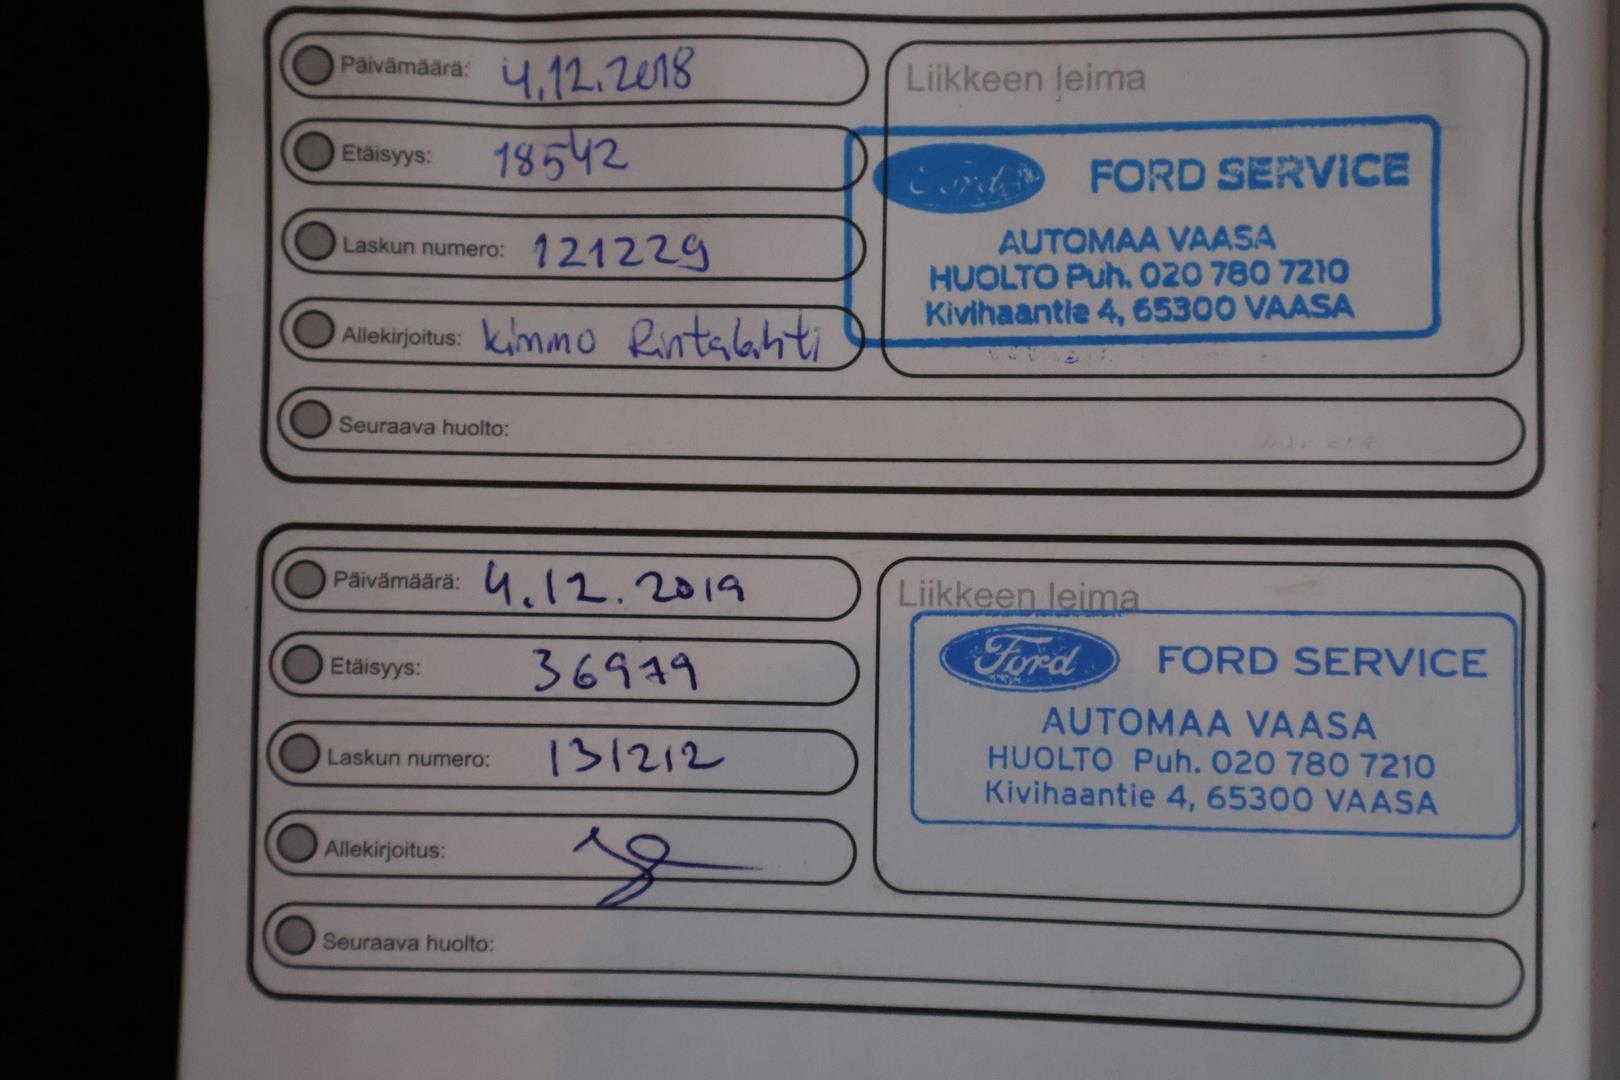 Päivämäärä: 4.12.2018
Liikkeen leima
Etäisyys: 18542
Ford FORD SERVICE
AUTOMAA VAASA
Laskun numero: 121229
HUOLTO Puh. 020 780 7210
Kivihaantie 4, 65300 VAASA
Allekirjoitus: Kimmo Rintalahti
Seuraava huolto:
Päivämäärä: 4.12.2019
Liikkeen leima
Etäisyys: 36979
Ford FORD SERVICE
AUTOMAA VAASA
Laskun numero: 131212
HUOLTO Puh. 020 780 7210
Kivihaantie 4, 65300 VAASA
Allekirjoitus:
Seuraava huolto: